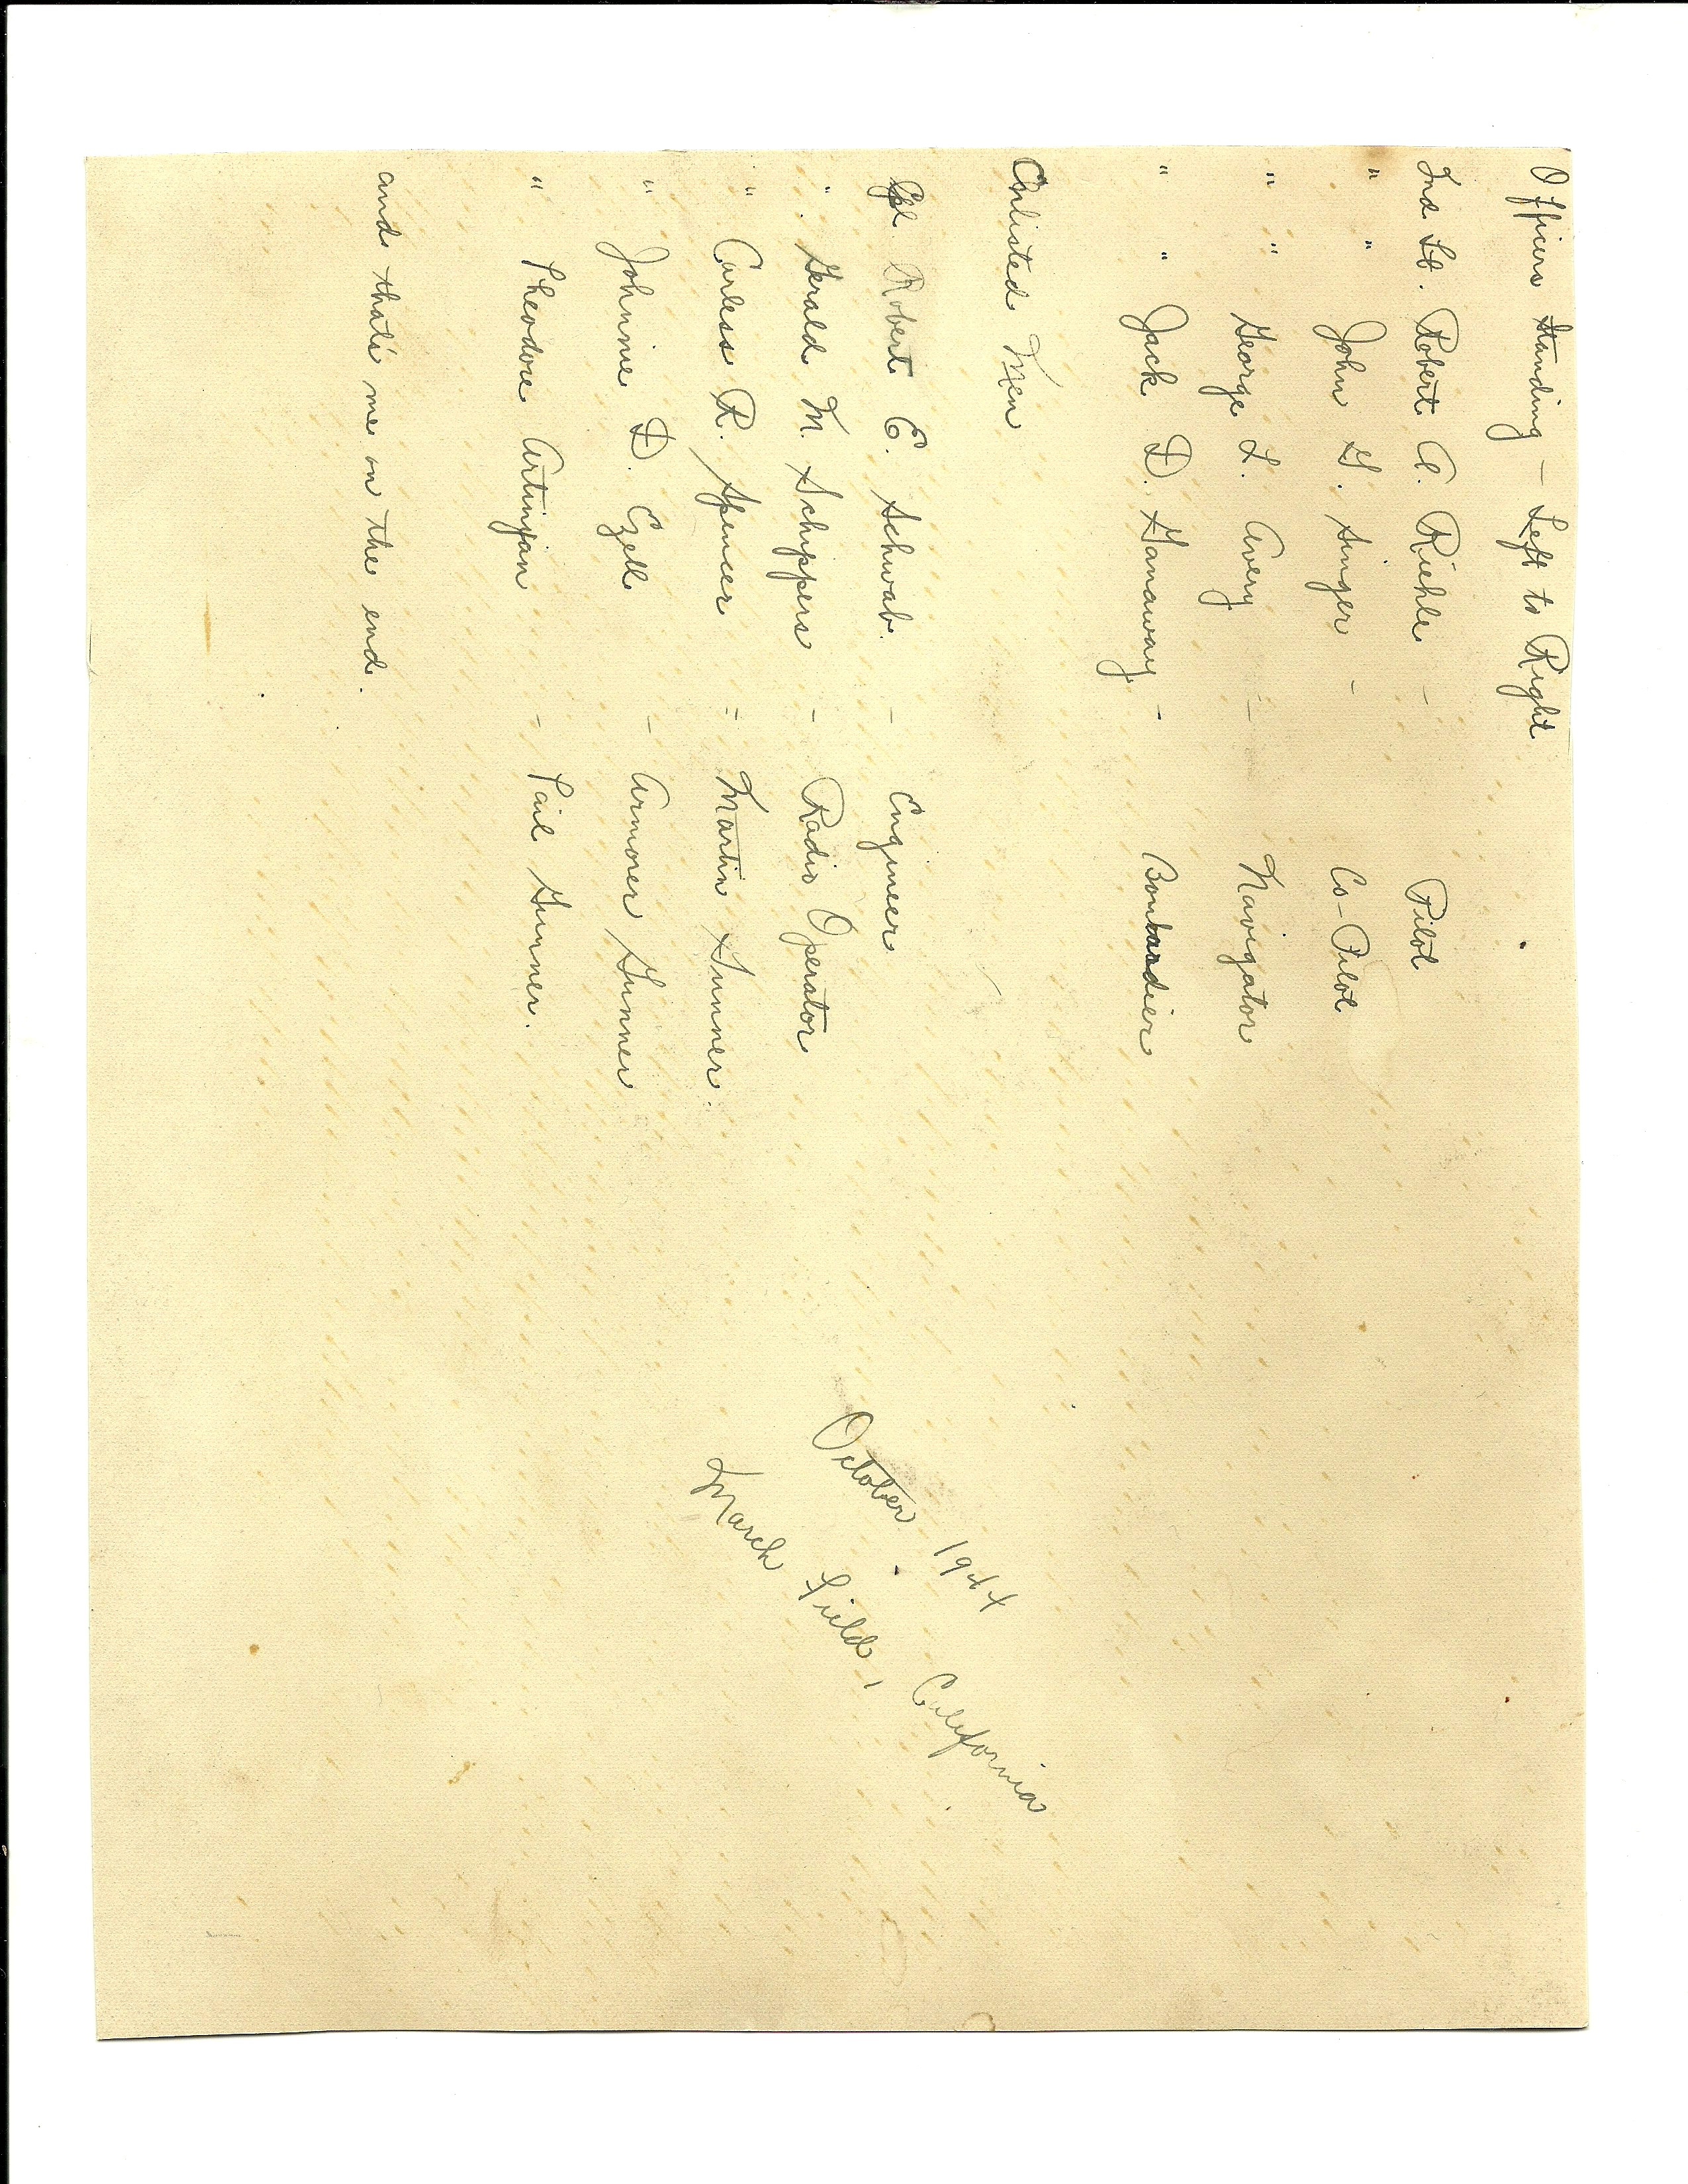 Officers Standing - Left to Right
2nd Lt. Robert A. Riehle - Pilot
" " John G. Singer - Co-Pilot
" " George L. Avery - Navigator
" " Jack D. Hanaway - Bombardier
Enlisted Men
Cpl Robert E. Schwab. - Engineer
" Gerald M. Schippers - Radio Operator
" Carless R. Spencer - Martin Gunner.
" Johnnie D. Ezell - Armorer Gunner
" Theodore Artinyan - Tail Gunner.
and that's me on the end.
October 1944
March Field, California